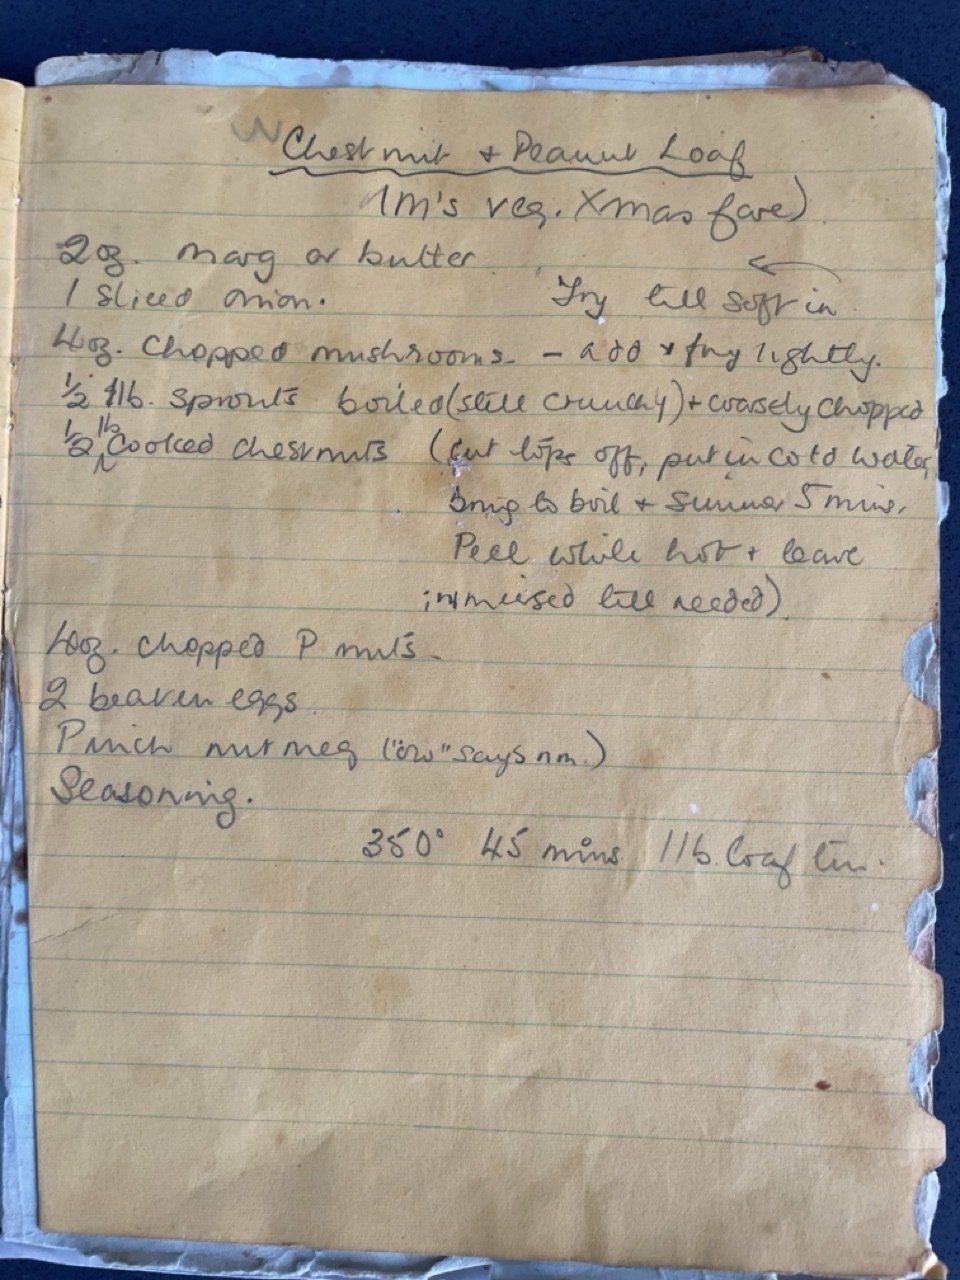 Chestnut + Peanut Loaf
(M's veg. Xmas fare)
2oz. marg or butter
1 sliced onion. Fry till soft in
4oz. chopped mushrooms - add & fry lightly.
½ lb. sprouts boiled (still crunchy) + coarsely chopped
½ lb cooked chestnuts (cut tops off, put in cold water,
bring to boil + simmer 5 mins.
Peel while hot + leave
immersed till needed).
4oz. chopped P nuts.
2 beaten eggs
Pinch nutmeg (" says nm.)
Seasoning.
350° 45 mins 1 lb. loaf tin.